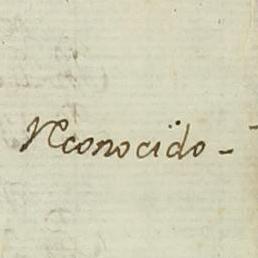 Reconocido -